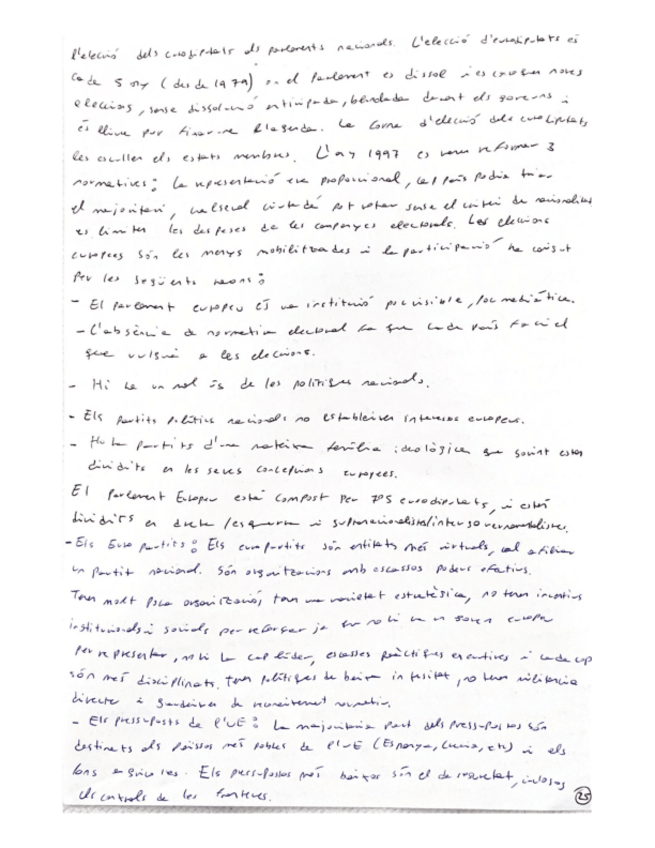 l'elecció dels eurodiputats als parlaments nacionals. L'elecció d'eurodiputats és
cada 5 any (des de 1979) on el Parlament es dissol i es noves
eleccions, sense dissolució anticipada, blindada davant els governs i
és lliure per l'agenda. La forma d'elecció dels eurodiputats
les escullen els estats membres. L'any 1997 es reformar 3
normatives: La representació era proporcional, cap país podia triar
el majoritari, ciutadà pot votar sense el criteri de nacionalitat
es limiten les despeses de les campanyes electorals. Les eleccions
europees són les menys mobilitzades i la participació ha caigut
per les següents raons:
- El parlament europeu és una institució poc visible, poc mediàtica.
- L'absència de normativa electoral fa que cada país faci el
que vulgui a les eleccions.
- Hi ha un mal ús de les polítiques nacionals.
- Els partits polítics nacionals no estableixen interessos europeus.
- Hi ha partits d'una mateixa família ideològica que sovint estan
dividits en les seves concepcions europees.
El Parlament Europeu està compost per 705 eurodiputats, i estan
dividits en dreta/esquerra i supranacionalistes/intergovernamentalistes.
- Els Euro partits: Els europartits són entitats més virtuals, cal afiliar
un partit nacional. Són organitzacions amb escassos poders efectius.
Tenen molt poca organització, tenen una varietat estratègica, no tenen incentius
institucionals i socials per reforçar ja que no hi ha un europa
per representar, no hi ha cap líder, escasses pràctiques executives i cada cop
són més disciplinats, tenen polítiques de baixa intensitat, no tenen militància
directe i de normatiu.
- Els pressupostos de l'UE: La majoritària part dels pressupostos són
destinats als països més pobles de l'UE (Espanya, Grecia, etc) i els
fons agrícoles. Els pressupostos més baixos són el de seguretat, inclosos
els controls de les fronteres.
25